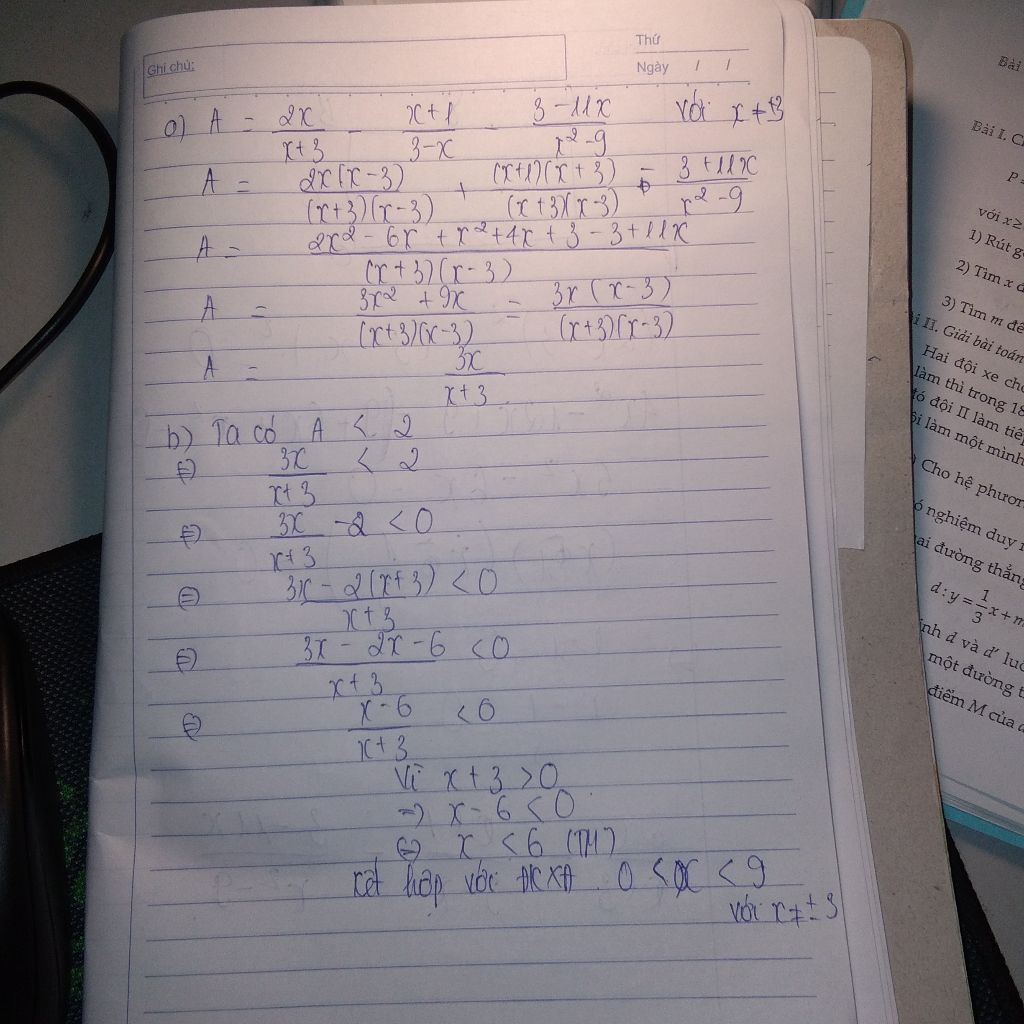 Ghi chú:
Thứ
Ngày / /
a) A = 2x/(x+3) - (x+1)/(3-x) - (3-11x)/(x²-9) với x ≠ ±3
A = 2x(x-3)/((x+3)(x-3)) + (x+1)(x+3)/((x+3)(x-3)) - (3+11x)/(x²-9)
A = (2x² - 6x + x² + 4x + 3 - 3 + 11x)/((x+3)(x-3))
A = (3x² + 9x)/((x+3)(x-3)) = 3x(x-3)/((x+3)(x-3))
A = 3x/(x+3)
b) Ta có A < 2
⇔ 3x/(x+3) < 2
⇔ 3x/(x+3) - 2 < 0
⇔ (3x - 2(x+3))/(x+3) < 0
⇔ (3x - 2x - 6)/(x+3) < 0
⇔ (x-6)/(x+3) < 0
Vì x + 3 > 0
⇒ x - 6 < 0
⇔ x < 6 (TM)
Kết hợp với ĐKXĐ 0 < x < 9
với x ≠ ± 3
Bài
Bài I. C
P =
với x ≥
1) Rút g
2) Tìm x
3) Tìm m để
II. Giải bài toán
Hai đội xe ch
làm thì trong 18
đó đội II làm tiếp
làm một mình
Cho hệ phươn
nghiệm duy n
đường thẳng
d : y = 1/3 x + m
d và d' luô
một đường t
điểm M của d